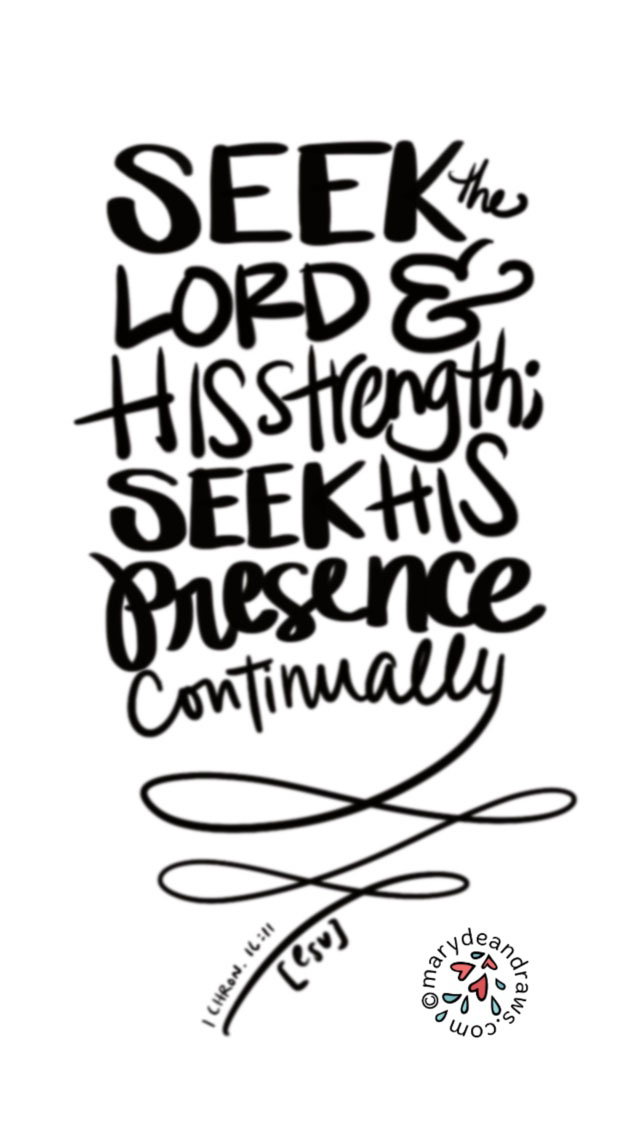 SEEK the
LORD &
HIS strength;
SEEK HIS
presence
continually
1 CHRON. 16:11
[esv]
©marydeandraws.com